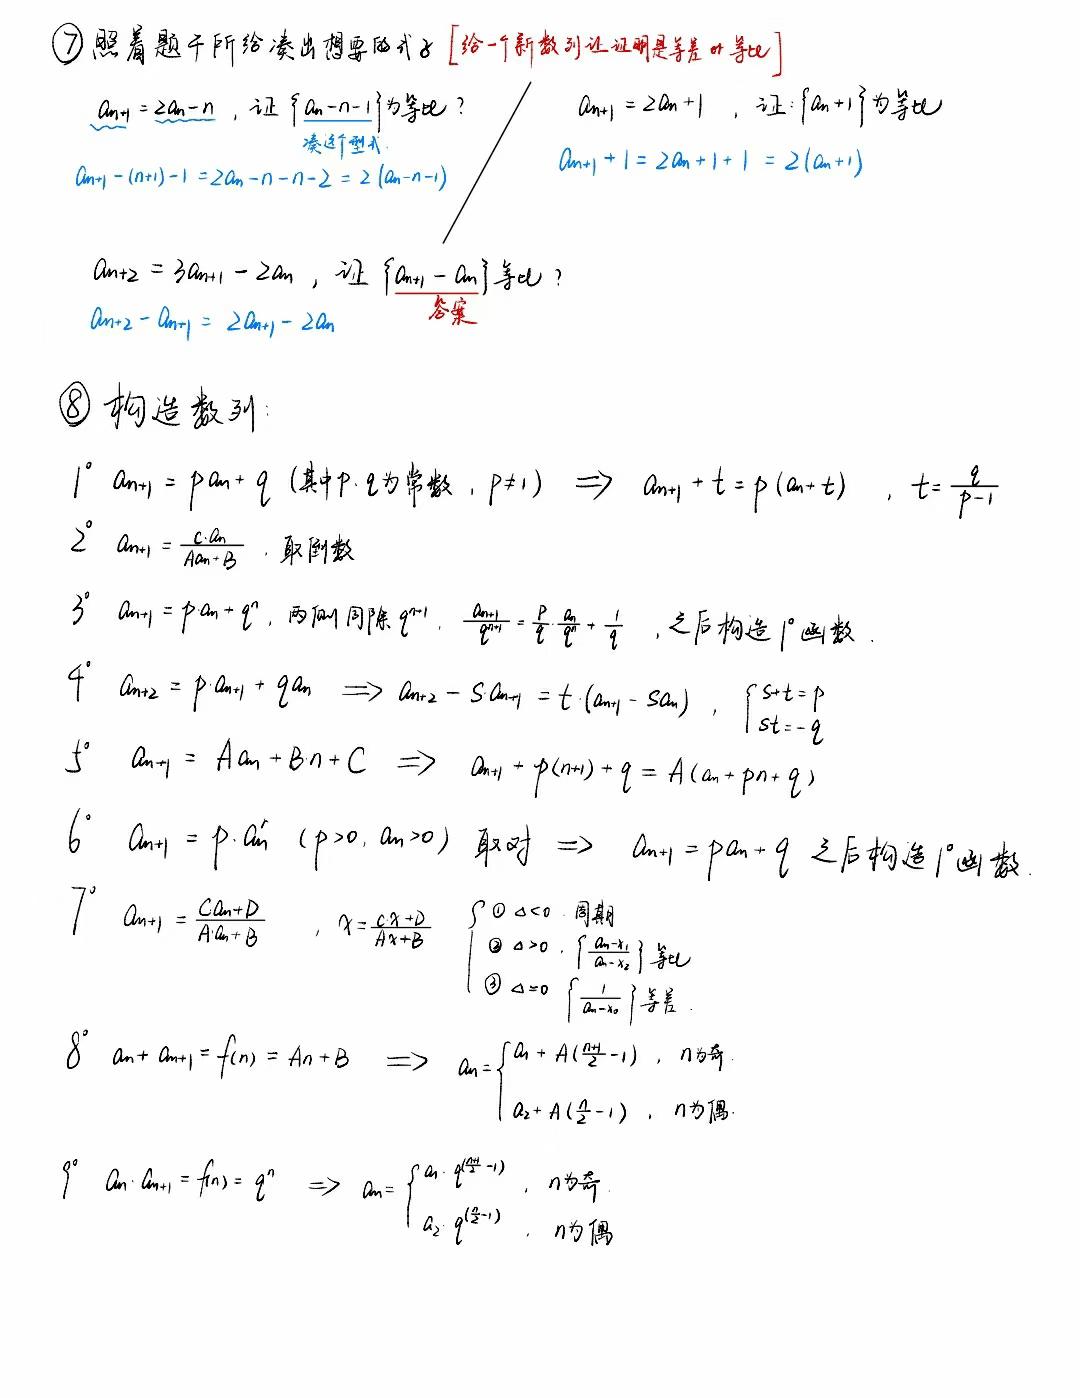 ⑦ 照着题干所给凑出想要的式子 [给一个新数列让证明是等差 or 等比]
aₙ₊₁ = 2aₙ - n , 证 {aₙ - n - 1} 为等比?
aₙ₊₁ = 2aₙ + 1 , 证: {aₙ + 1} 为等比
凑这个型式.
aₙ₊₁ - (n+1) - 1 = 2aₙ - n - n - 2 = 2(aₙ - n - 1)
aₙ₊₁ + 1 = 2aₙ + 1 + 1 = 2(aₙ + 1)
aₙ₊₂ = 3aₙ₊₁ - 2aₙ , 证 {aₙ₊₁ - aₙ} 等比?
答案
aₙ₊₂ - aₙ₊₁ = 2aₙ₊₁ - 2aₙ
⑧ 构造数列:
1° aₙ₊₁ = paₙ + q (其中p.q为常数, p≠1) ⇒ aₙ₊₁ + t = p(aₙ + t) , t = q/(p-1)
2° aₙ₊₁ = C·aₙ/(Aaₙ+B) . 取倒数
3° aₙ₊₁ = p·aₙ + qⁿ, 两侧同除 qⁿ⁺¹, aₙ₊₁/qⁿ⁺¹ = p/q · aₙ/qⁿ + 1/q , 之后构造1°函数.
4° aₙ₊₂ = p·aₙ₊₁ + qaₙ ⇒ aₙ₊₂ - S·aₙ₊₁ = t·(aₙ₊₁ - Saₙ) , { S+t = p
St = -q
5° aₙ₊₁ = Aaₙ + B·n + C ⇒ aₙ₊₁ + p(n+1) + q = A(aₙ + pn + q)
6° aₙ₊₁ = p·aₙʳ (p>0, aₙ>0) 取对 ⇒ aₙ₊₁ = paₙ + q 之后构造1°函数.
7° aₙ₊₁ = (Caₙ+D)/(A·aₙ+B) , x = (Cx+D)/(Ax+B) { ① Δ<0 . 周期
② Δ>0 . {(aₙ-x₁)/(aₙ-x₂)} 等比
③ Δ=0 {1/(aₙ-x₀)} 等差.
8° aₙ + aₙ₊₁ = f(n) = An + B ⇒ aₙ = { a₁ + A((n+1)/2 - 1) , n为奇.
a₂ + A(n/2 - 1) , n为偶.
9° aₙ·aₙ₊₁ = f(n) = qⁿ ⇒ aₙ = { a₁·q^((n+1)/2 - 1) , n为奇.
a₂·q^(n/2 - 1) , n为偶